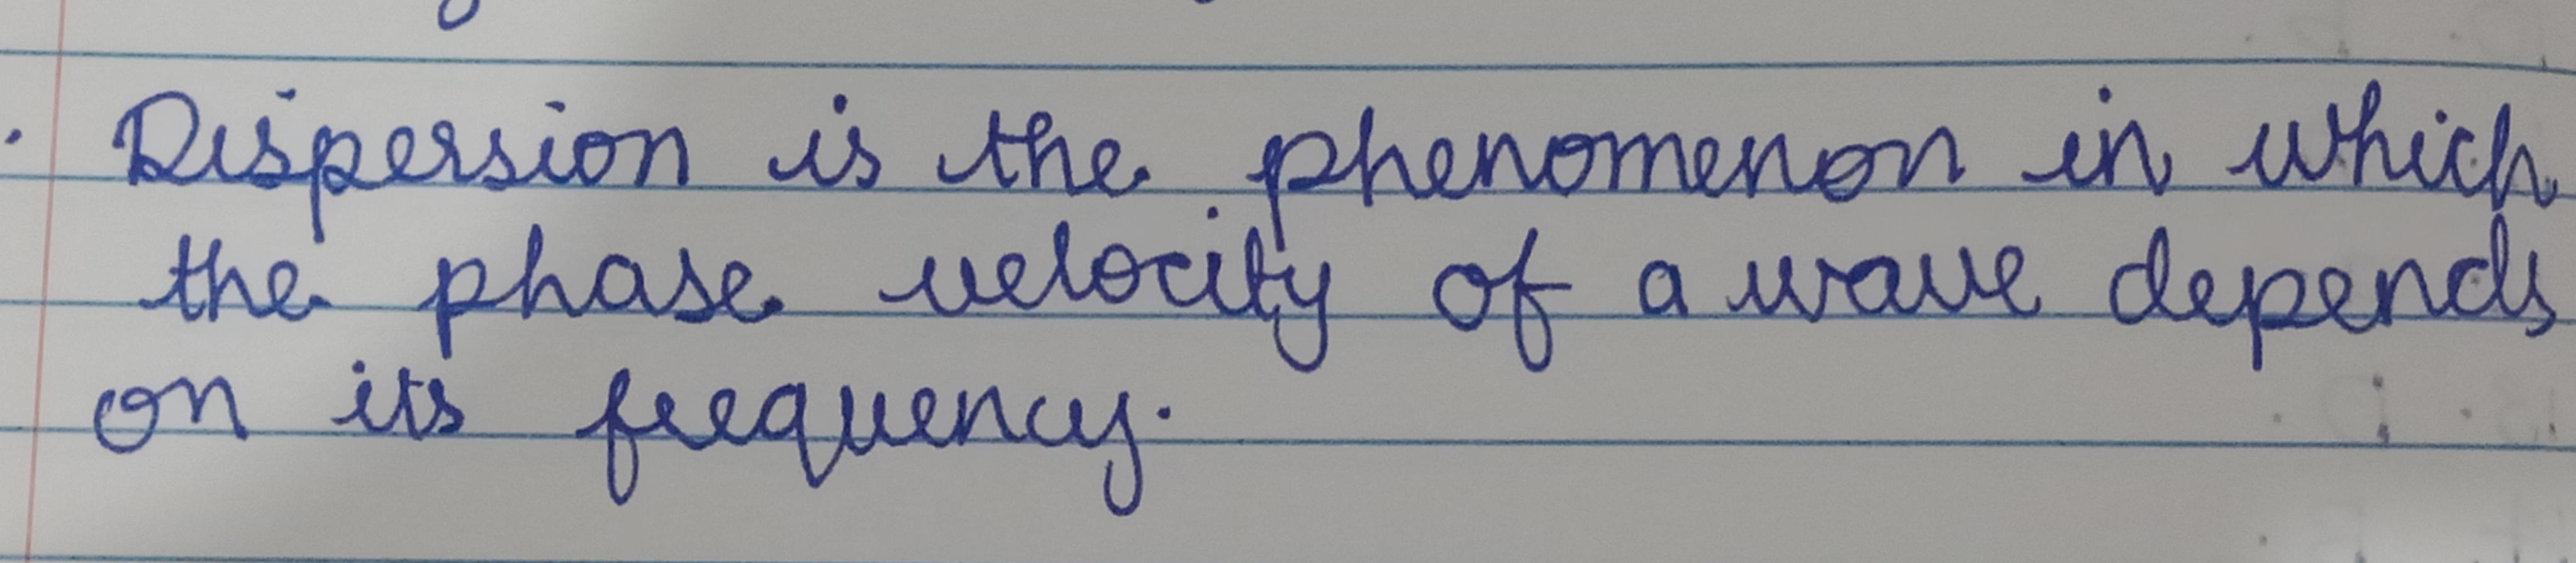 Dispersion is the phenomenon in which
the phase velocity of a wave depends
on its frequency.